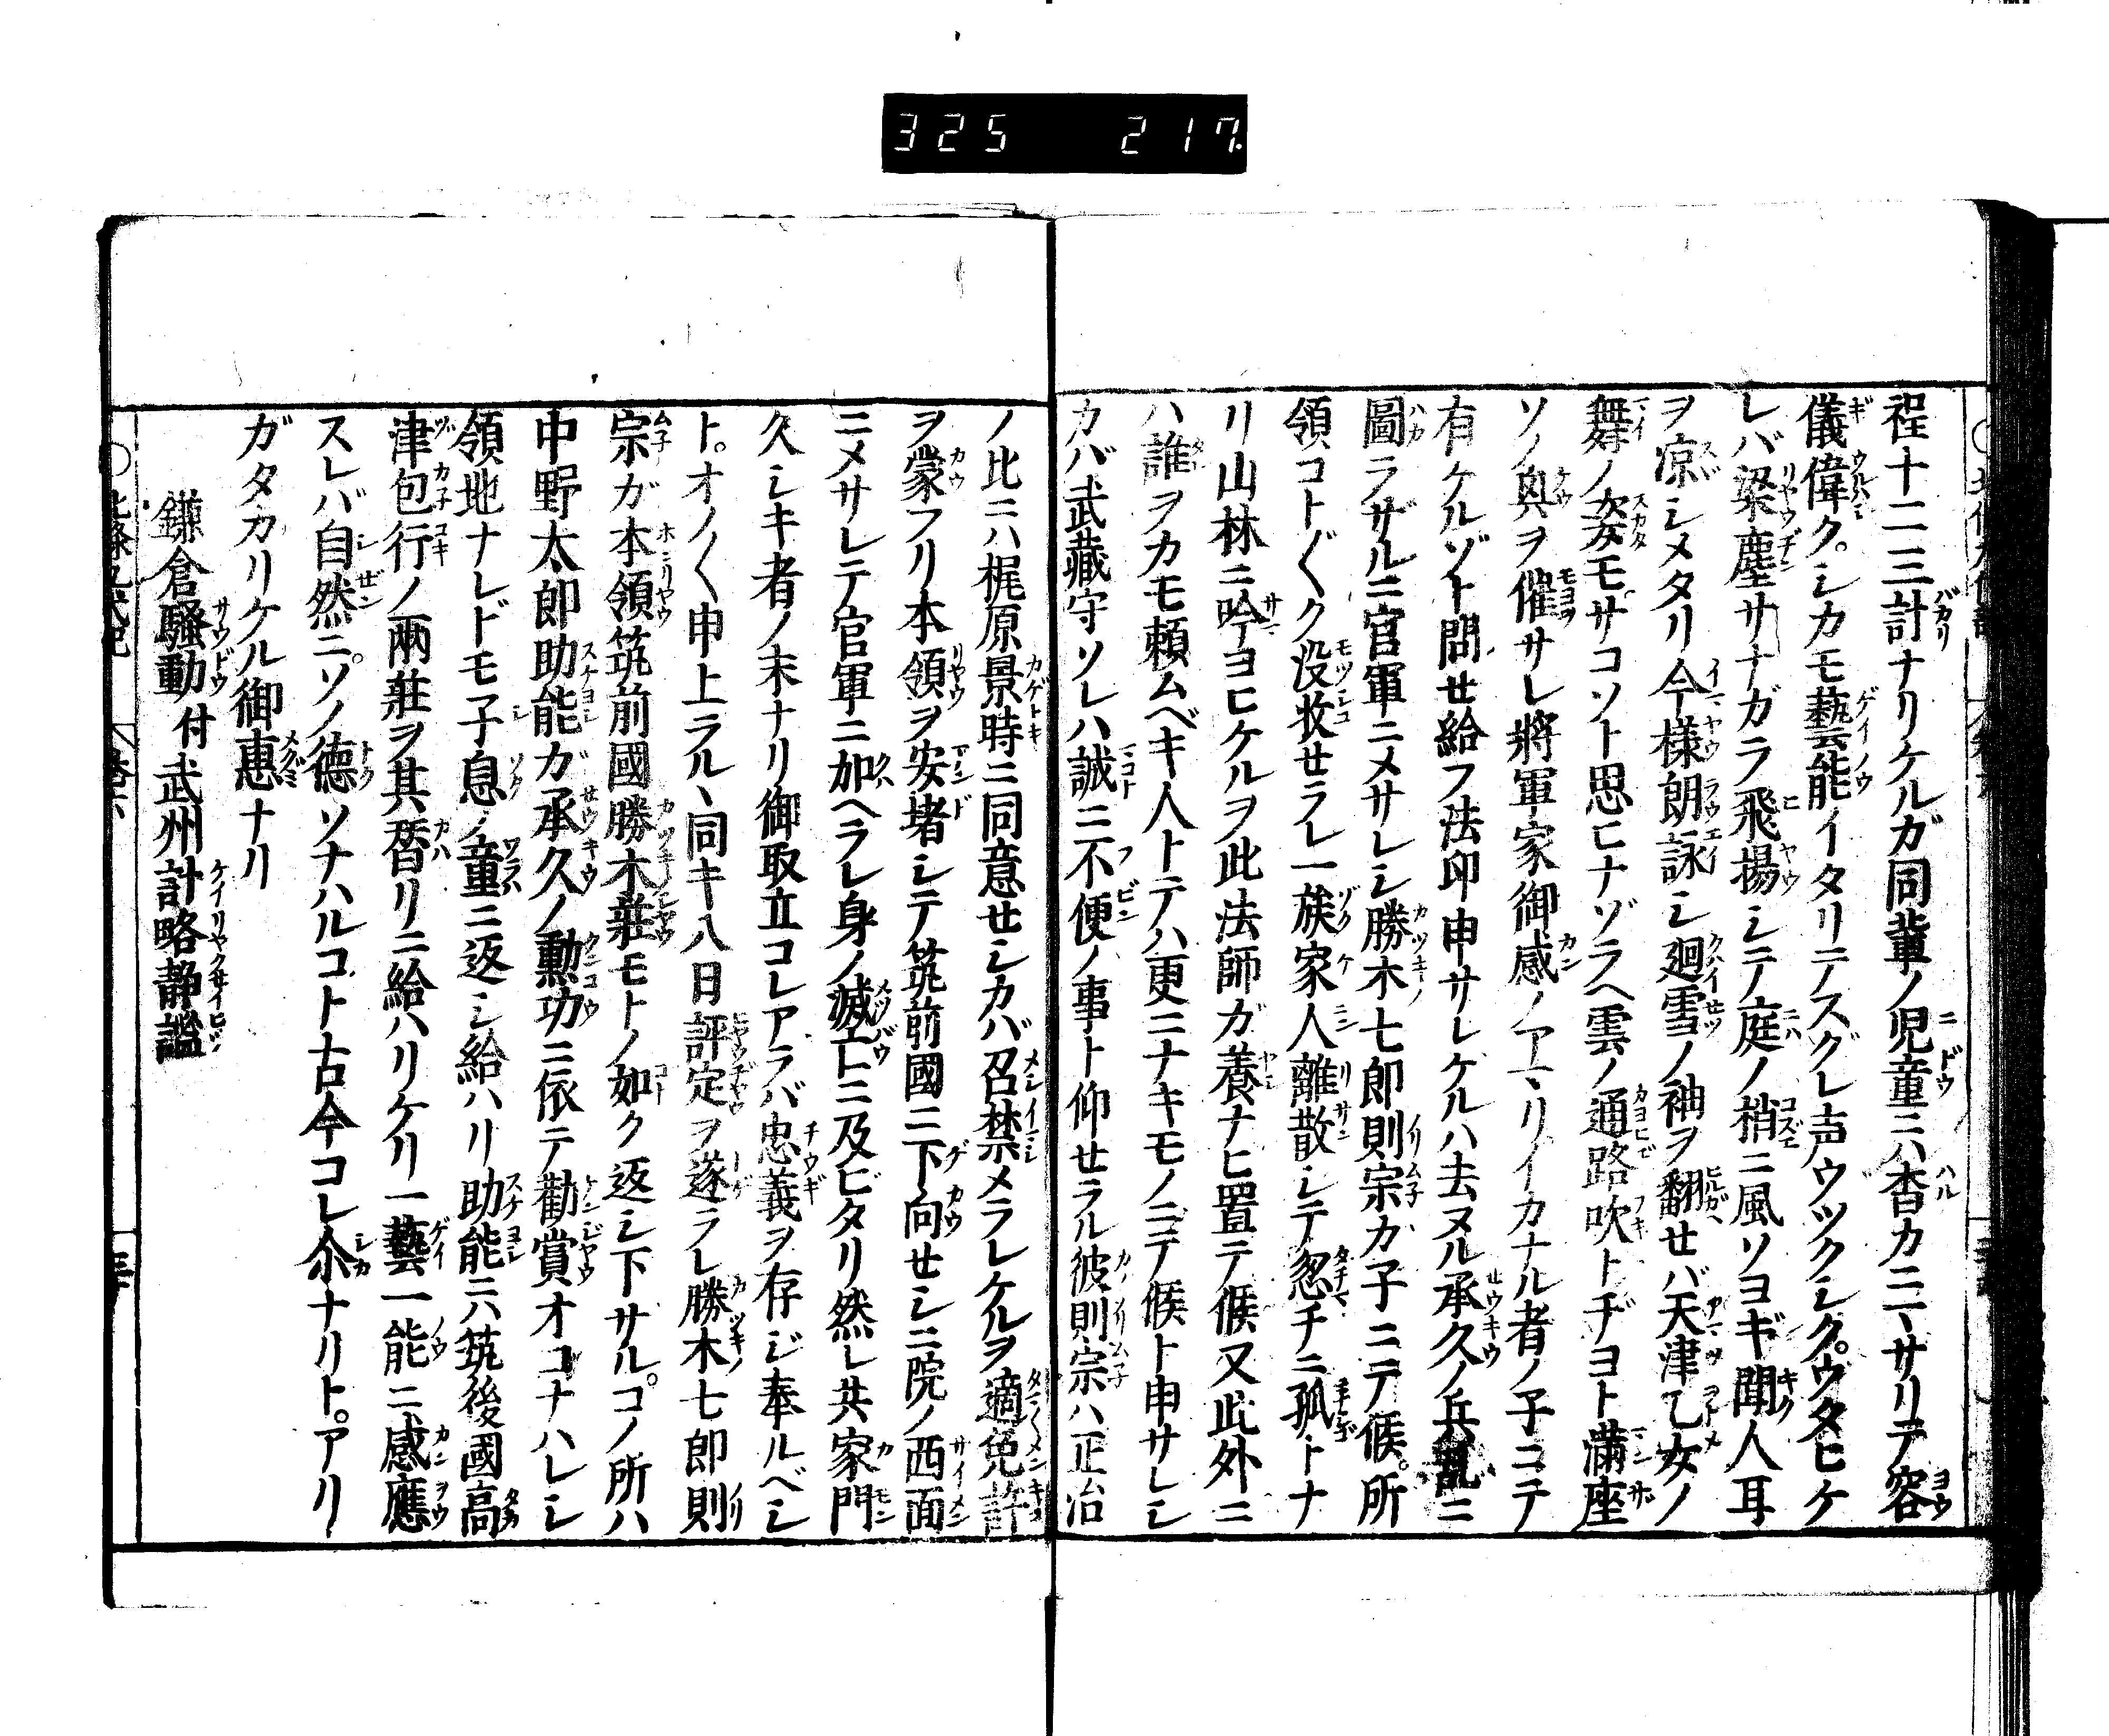 325 217
程十二三計ナリケルガ同輩ノ児童ニハ杳カニマサリテ容
儀偉ク。シカモ藝能イタリテスグレ声ウツクシク。ウタヒケ
レバ梁塵サナガラ飛揚シテ庭ノ梢ニ風ソヨギ聞人耳
ヲ凉シメタリ今様朗詠シ廻雪ノ袖ヲ翻セバ天津乙女ノ
舞ノ姿モ。サコソト思ヒナゾラヘ雲ノ通路吹トヂヨト滿座
ソノ興ヲ催サレ將軍家御感ノアマリイカナル者ノ子ニテ
有ケルゾト問せ給フ法印申サレケルハ去ヌル承久ノ兵亂ニ
圖ラザルニ官軍ニメサレシ勝木七郎則宗カ子ニテ候。所
領コト〲ク没收せラレ一族家人離散シテ忽チニ孤トナ
リ山林ニ吟ヨヒケルヲ此法師ガ養ナヒ置テ候又此外ニ
ハ誰ヲカモ頼ムベキ人トテハ更ニナキモノニテ候ト申サレシ
カバ武藏守ソレハ誠ニ不便ノ事ト仰せラル彼則宗ハ正治
ノ比ニハ梶原景時ニ同意せシカバ召禁メラレケルヲ適免許
ヲ蒙フリ本領ヲ安堵シテ筑前國ニ下向せシニ院ノ西面
ニメサレテ官軍ニ加ヘラレ身ノ滅亡ニ及ビタリ然レ共家門
久シキ者ノ末ナリ御取立コレアラバ忠義ヲ存ジ奉ルベシ
ト。オノ〱申上ラル、同キ八日評定ヲ遂ラレ勝木七郎則
宗ガ本領筑前國勝木莊モトノ如ク返シ下サル。コノ所ハ
中野太郎助能ガ承久ノ勲功ニ依テ勸賞オコナハレシ
領地ナレドモ子息ノ童ニ返シ給ハリ助能ニハ筑後國高
津包行ノ兩莊ヲ其替リニ給ハリケリ一藝一能ニ感應
スレバ自然ニ。ソノ德ソナハルコト古今コレ尒ナリト。アリ
ガタカリケル御惠ナリ
鎌倉騷動付武州計略静謐